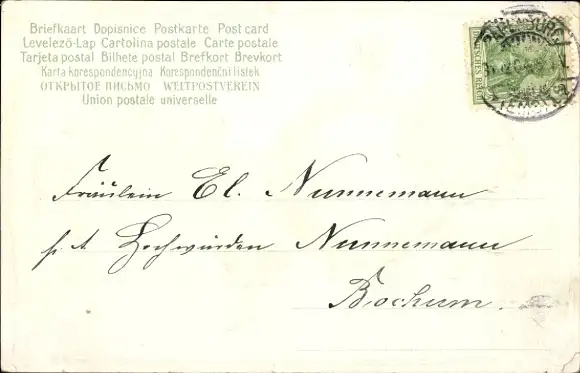 Briefkaart Dopisnice Postkarte Post card
Levelező-Lap Cartolina postale Carte postale
Tarjeta postal Bilhete postal Brefkort Brevkort
Karta korespondencyjna Korespondenční listek
ОТКРЫТОЕ ПИСЬМО WELTPOSTVEREIN
Union postale universelle
PAPENBURG
DEUTSCHES REICH
(EMS)
Fräulein El. Nunnemann
p. A. Hochwürden Nunnemann
Bochum.